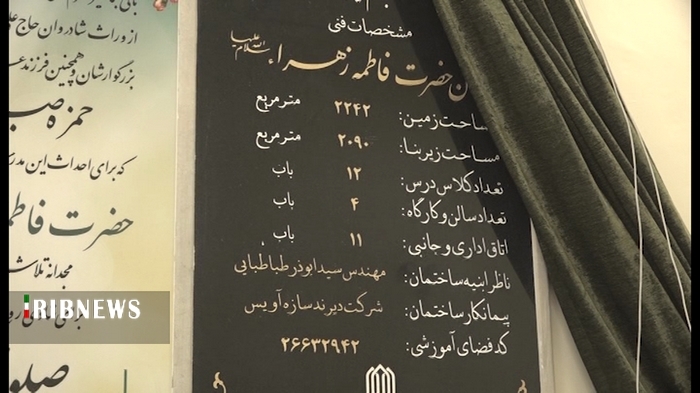 مشخصات فنی
حضرت فاطمه زهرا سلام الله علیها
مساحت زمین: ۲۲۴۲ مترمربع
مساحت زیربنا: ۲۰۹۰ مترمربع
تعداد کلاس درس: ۱۲ باب
تعداد سالن و کارگاه: ۴ باب
اتاق اداری و جانبی: ۱۱ باب
ناظر ابنیه ساختمان: مهندس سید ابوذر طباطبایی
پیمانکار ساختمان: شرکت دیرند سازه آویس
کد فضای آموزشی: ۲۶۶۳۲۹۴۲
از وراث شادروان حاج
بزرگوارشان و همچنین فرزند
حمزه
که برای احداث این
حضرت
مجدانه
IRIBNEWS